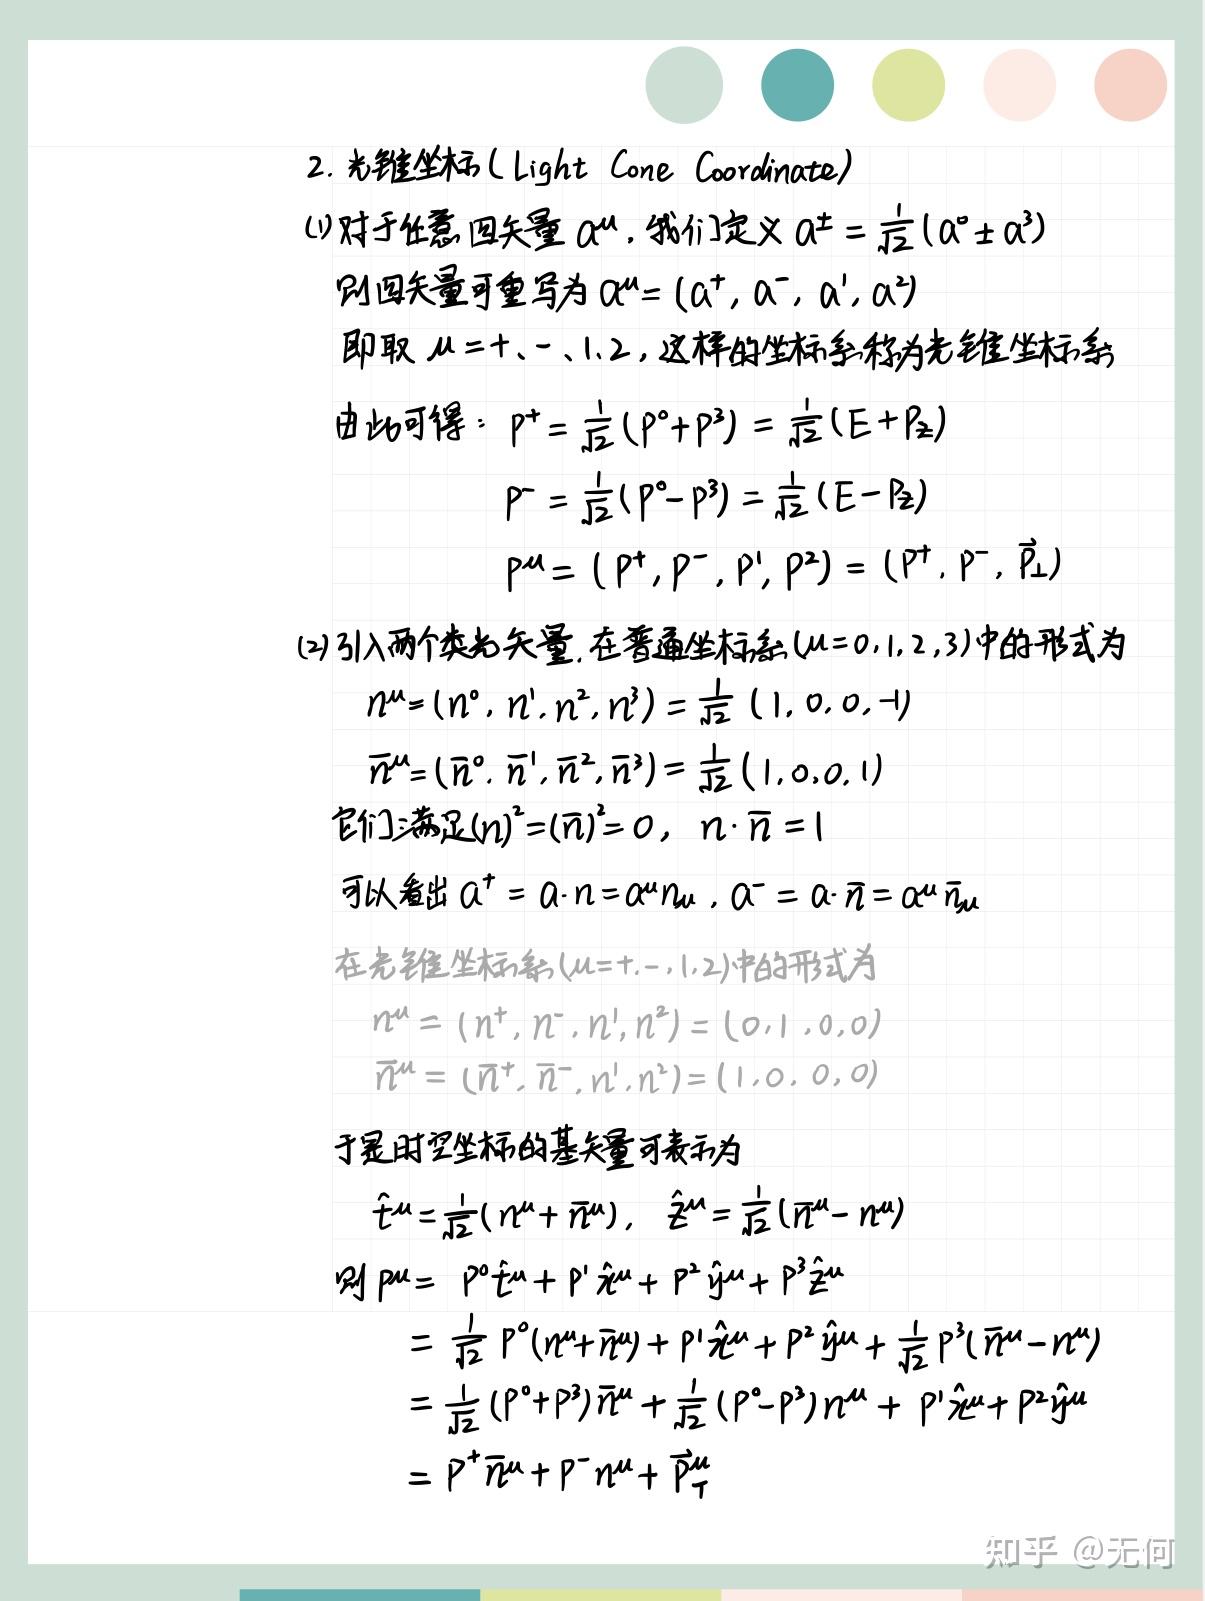 2. 光锥坐标(Light Cone Coordinate)
(1)对于任意四矢量 a^μ, 我们定义 a^± = 1/√2 (a^0 ± a^3)
则四矢量可重写为 a^μ = (a^+, a^-, a^1, a^2)
即取 μ=+、-、1、2, 这样的坐标系称为光锥坐标系
由此可得: P^+ = 1/√2 (P^0+P^3) = 1/√2 (E+P_z)
P^- = 1/√2 (P^0-P^3) = 1/√2 (E-P_z)
P^μ = (P^+, P^-, P^1, P^2) = (P^+, P^-, \vec{P}_⊥)
(2)引入两个类光矢量, 在普通坐标系(μ=0,1,2,3)中的形式为
n^μ = (n^0, n^1, n^2, n^3) = 1/√2 (1, 0, 0, -1)
n̄^μ = (n̄^0, n̄^1, n̄^2, n̄^3) = 1/√2 (1, 0, 0, 1)
它们满足(n)^2=(n̄)^2=0, n·n̄=1
可以看出 a^+ = a·n = a^μ n_μ, a^- = a·n̄ = a^μ n̄_μ
在光锥坐标系(μ=+,-,1,2)中的形式为
n^μ = (n^+, n^-, n^1, n^2) = (0, 1, 0, 0)
n̄^μ = (n̄^+, n̄^-, n^1, n^2) = (1, 0, 0, 0)
于是时空坐标的基矢量可表示为
t̂^μ = 1/√2 (n^μ + n̄^μ), ẑ^μ = 1/√2 (n̄^μ - n^μ)
则 P^μ = P^0 t̂^μ + P^1 x̂^μ + P^2 ŷ^μ + P^3 ẑ^μ
= 1/√2 P^0(n^μ+n̄^μ) + P^1 x̂^μ + P^2 ŷ^μ + 1/√2 P^3(n̄^μ - n^μ)
= 1/√2 (P^0+P^3) n̄^μ + 1/√2 (P^0-P^3) n^μ + P^1 x̂^μ + P^2 ŷ^μ
= P^+ n̄^μ + P^- n^μ + \vec{P}_T^μ
知乎 @无何